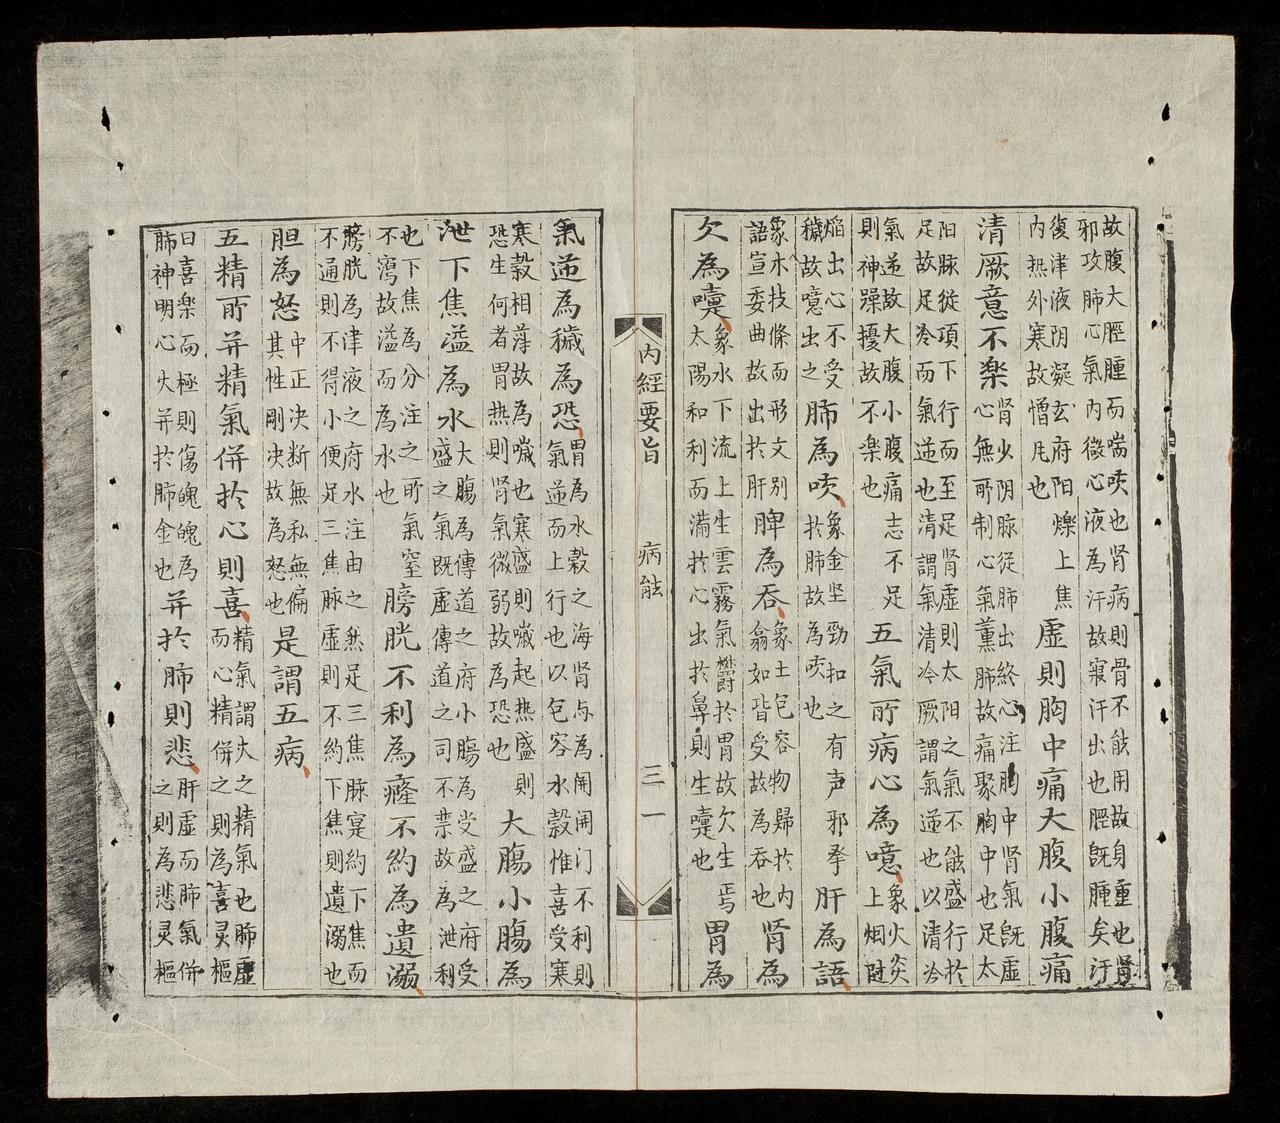 故腹大脛腫而喘咳也肾病則骨不能用故身重也肾
邪攻肺心氣内微心液為汗故寢汗出也脛既腫矣汙
復津液阴凝玄府阳爍上焦
内热外寒故憎凨也
虛則胸中痛大腹小腹痛
清厥意不楽
肾少阴脉従肺出終心注胸中肾氣既虛
心無所制心氣薰肺故痛聚胸中也足太
阳脉従項下行而至足肾虛則太阳之氣不能盛行於
足故足冷而氣逆也清謂氣清冷厥謂氣逆也以清冷
氣逆故大腹小腹痛志不足
則神躁擾故不楽也
五氣所病心為噫
象火炎
上烟
焰出心不受
穢故噫出之
肺為咳
象金坚勁扣之有声邪
於肺故為咳也
肝為語
象木技條而形文別
語宣委曲故出於肝
脾為吞
象土包容物歸於内
翕如皆受故為吞也
肾為
欠為嚏
象水下流上生雲霧氣欝於胃故欠生焉
太陽和利而满於心出於鼻則生嚏也
胃為
内經要旨 病能 三一
氣逆為穢為恐
胃為水穀之海肾与為関関门不利則
氣逆而上行也以包容水穀惟喜受寒
寒穀相薄故為噦也寒盛則噦起热盛則
恐生何者胃热則肾氣微弱故為恐也
大腸小腸為
泄下焦溢為水
大腸為傳道之府小腸為受盛之府受
盛之氣既虛傳道之司不禁故為泄利
也下焦為分注之所氣窒
不瀉故溢而為水也
膀胱不利為癃不約為遺溺
膀胱為津液之府水注由之然足三焦脉寔約下焦而
不通則不得小便足三焦脉虛則不約下焦則遺溺也
胆為怒
中正决断無私無偏
其性剛决故為怒也
是謂五病
五精所并精氣併於心則喜
精氣謂火之精氣也肺虛
而心精併之則為喜灵樞
曰喜楽而極則傷魄魄為
肺神明心火并於肺金也
并於肺則悲
肝虛而肺氣併
之則為悲灵樞